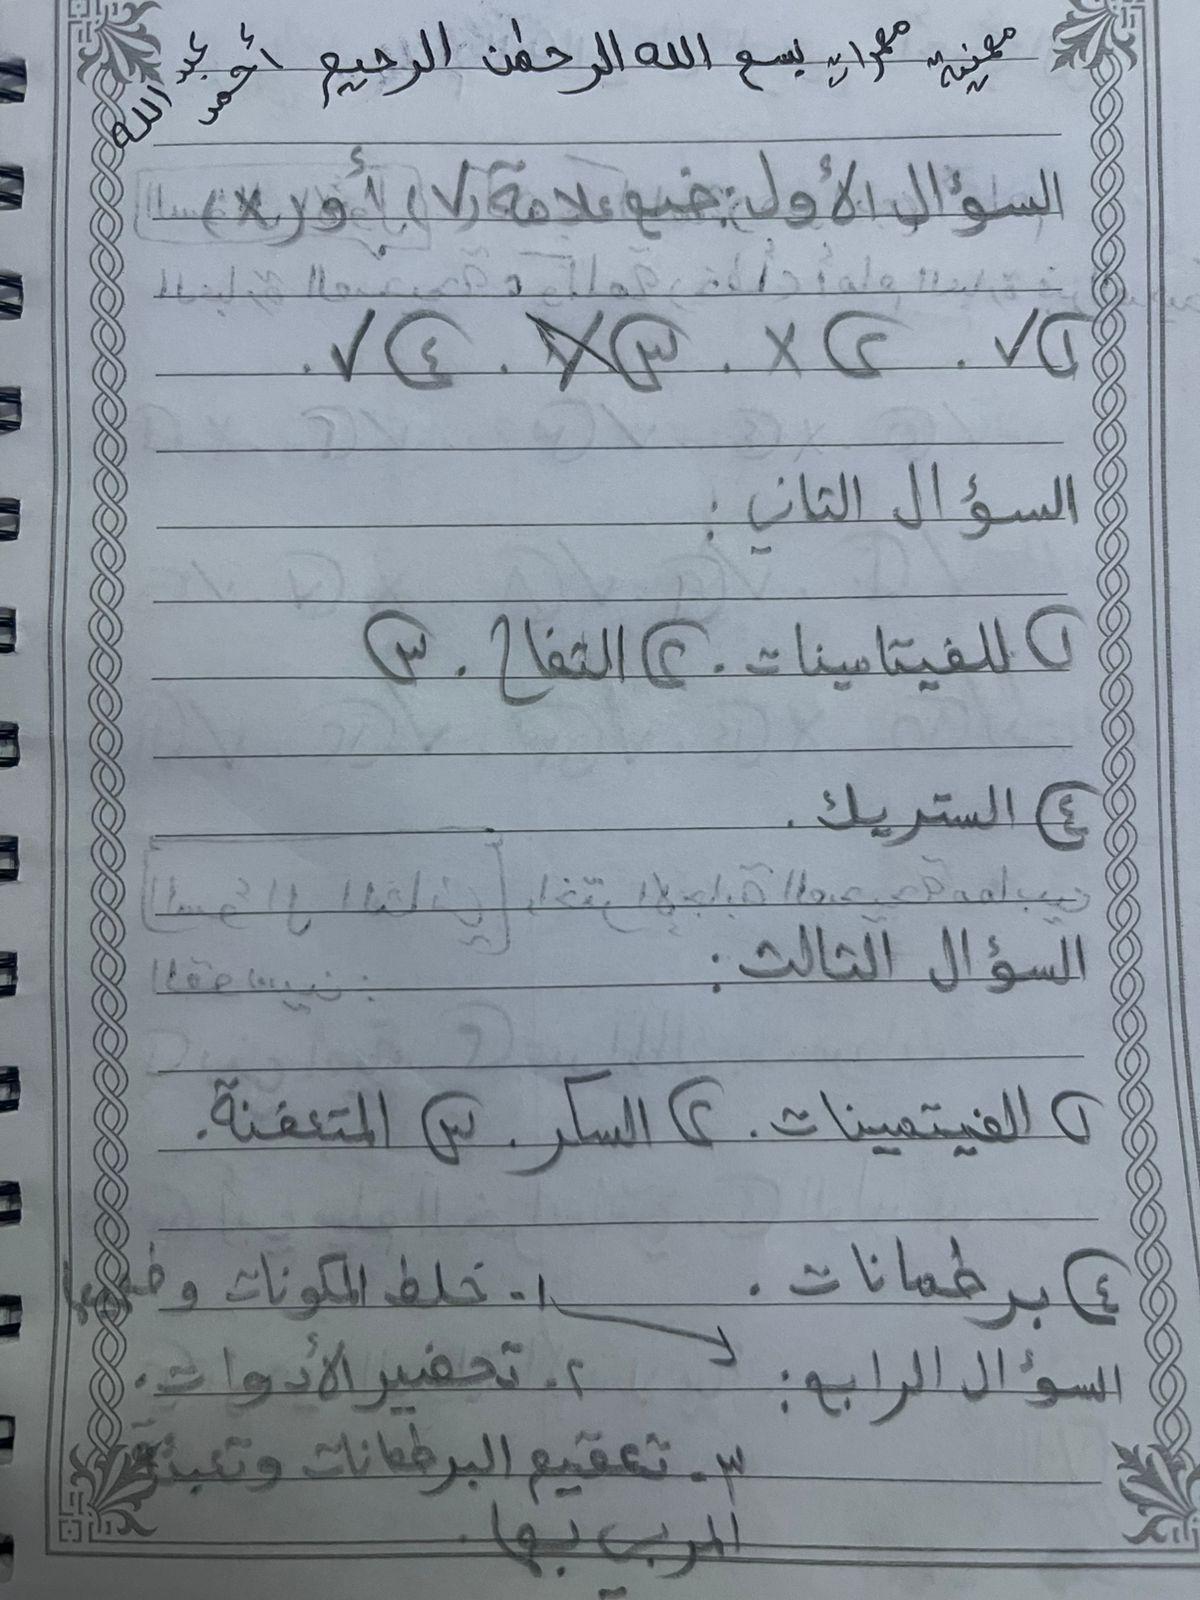 مهنية مهرات بسم الله الرحمن الرحيم أحمد عبد الله
السؤال الأول: ضع علامة (✓) أو (x)
١) ✓. ٢) X. ٣) X. ٤) ✓.
السؤال الثاني:
١) للفيتامينات. ٢) التفاح. ٣)
٤) الستريك.
السؤال الثالث:
١) الفيتمينات. ٢) السكر. ٣) المتعفنة.
٤) برطمانات.
السؤال الرابع: ١- خلط المكونات
٢- تحضير الأدوات.
٣- تعقيم البرطمانات وتعبئة
المربى بها.